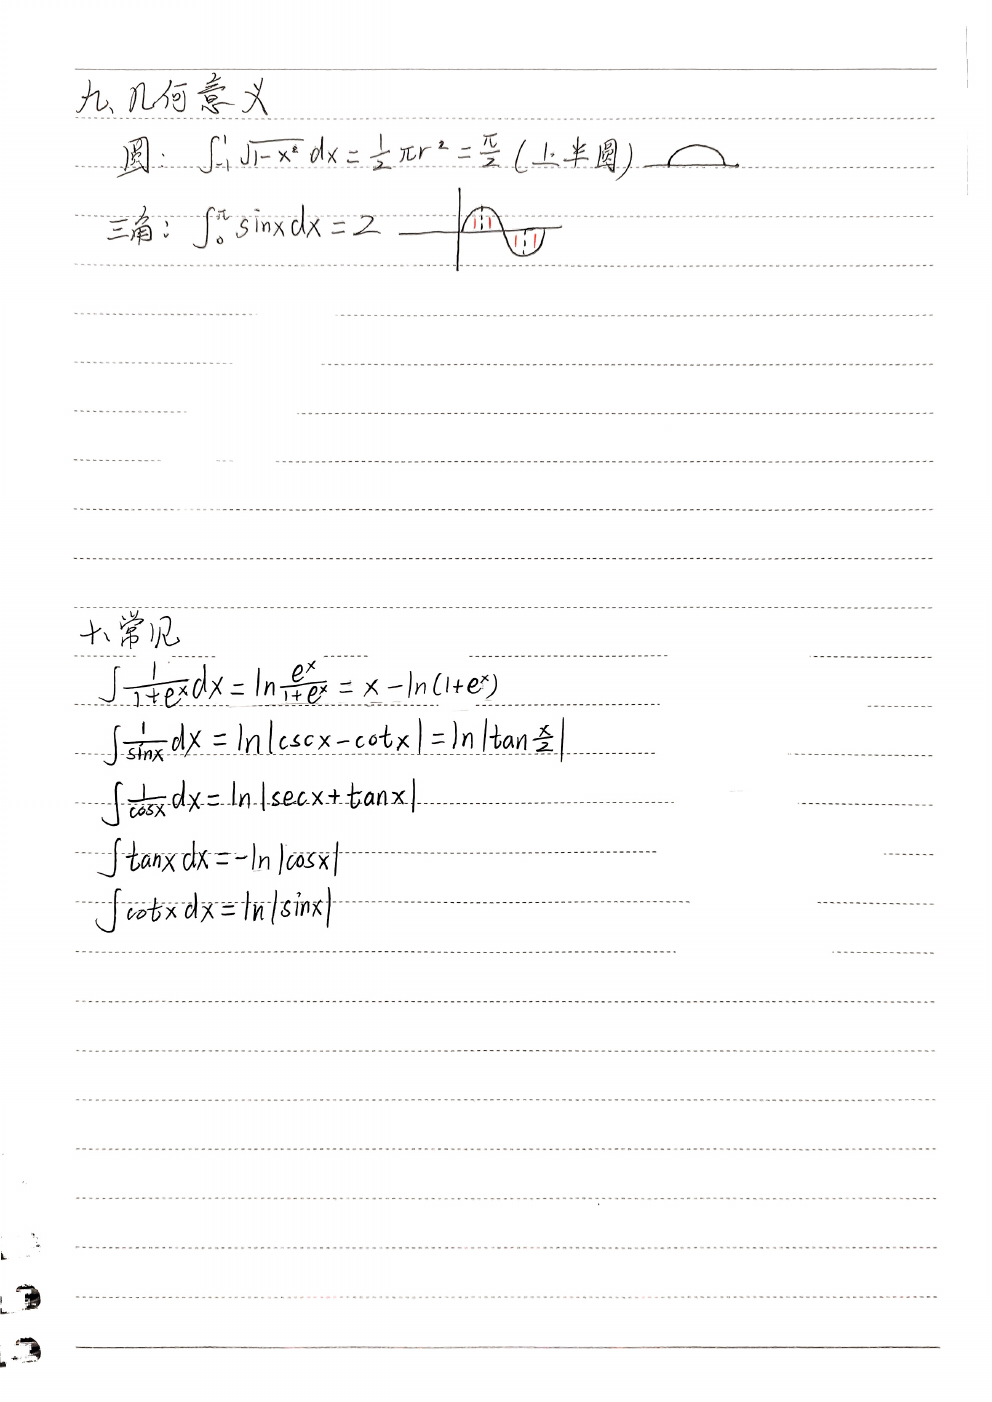 九、几何意义
圆: ∫₋₁¹ √(1-x²) dx = 1/2 πr² = π/2 (上半圆)
三角: ∫₀^π sinx dx = 2
十、常见
∫ 1/(1+eˣ) dx = ln eˣ/(1+eˣ) = x - ln(1+eˣ)
∫ 1/sinx dx = ln|cscx-cotx| = ln|tan x/2|
∫ 1/cosx dx = ln|secx+tanx|
∫ tanx dx = -ln|cosx|
∫ cotx dx = ln|sinx|